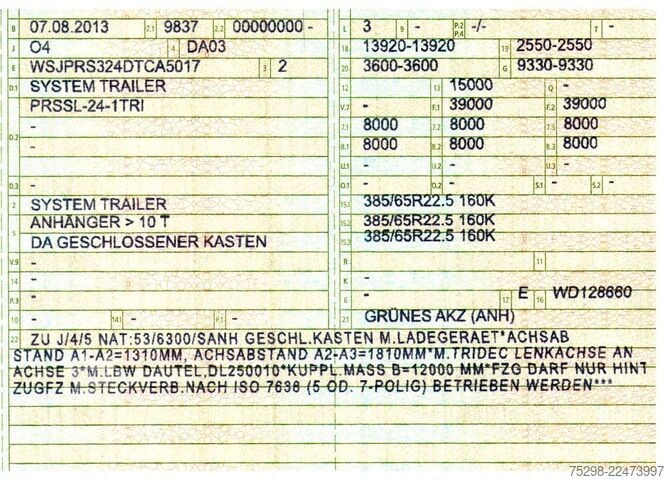 B 07.08.2013 2.1 9837 2.2 00000000 - L 3 9 - P.2 P.4 -/- T -
J O4 4 DA03 18 13920-13920 19 2550-2550
E WSJPRS324DTCA5017 3 2 20 3600-3600 G 9330-9330
D.1 SYSTEM TRAILER 12 - 13 15000 Q -
PRSSL-24-1TRI V.7 - F.1 39000 F.2 39000
D.2 - 7.1 8000 7.2 8000 7.3 8000
- 8.1 8000 8.2 8000 8.3 8000
- U.1 - U.2 - U.3 -
D.3 - O.1 - O.2 - S.1 - S.2 -
2 SYSTEM TRAILER 15.1 385/65R22.5 160K
5 ANHÄNGER > 10 T 15.2 385/65R22.5 160K
DA GESCHLOSSENER KASTEN 15.3 385/65R22.5 160K
V.9 - R - 11 -
14 - K -
P.3 - 6 - 17 E 16 WD128660
10 - 14.1 - P.1 - 21 GRÜNES AKZ (ANH)
22 ZU J/4/5 NAT:53/6300/SANH GESCHL.KASTEN M.LADEGERAET*ACHSAB
STAND A1-A2=1310MM, ACHSABSTAND A2-A3=1810MM*M.TRIDEC LENKACHSE AN
ACHSE 3*M.LBW DAUTEL,DL250010*KUPPL.MASS B=12000 MM*FZG DARF NUR HINT
ZUGFZ M.STECKVERB.NACH ISO 7638 (5 OD. 7-POLIG) BETRIEBEN WERDEN***
75298-22473997